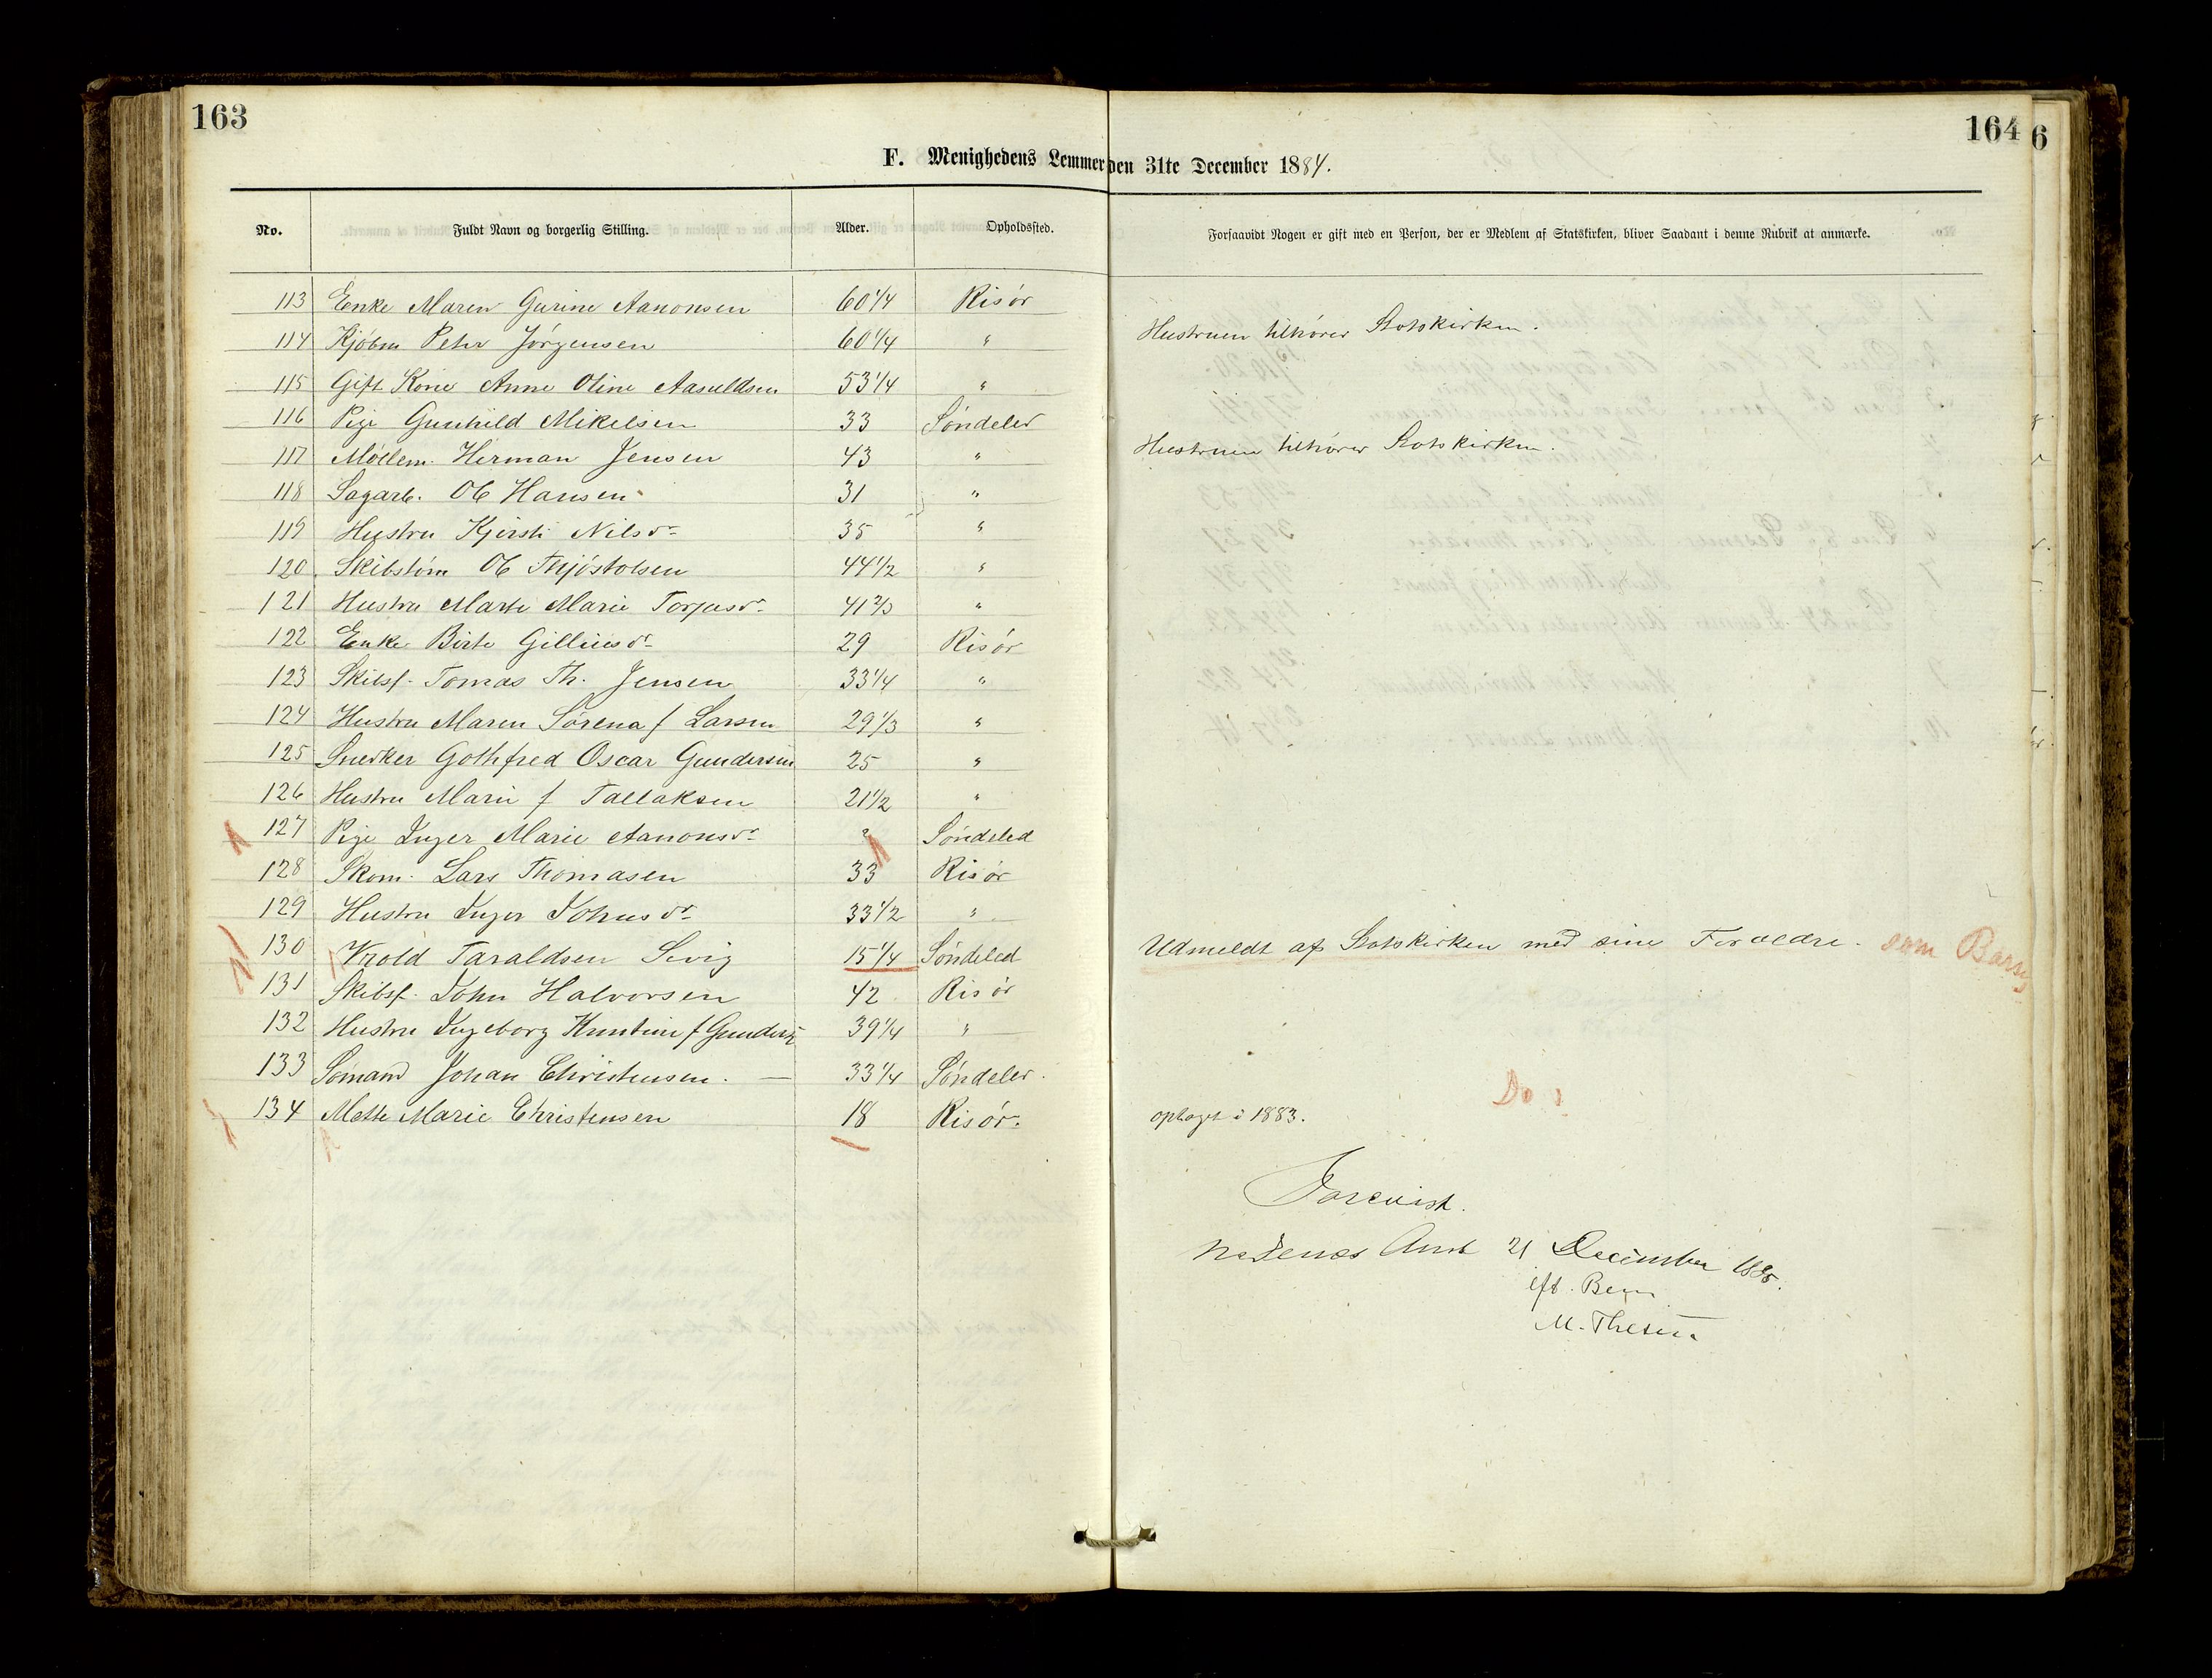 163
164
6
F. Menighedens Lemmer den 31te December 1884.
No. Fuldt Navn og borgerlig Stilling. Alder. Opholdssted. Forsaavidt Nogen er gift med en Person, der er Medlem af Statskirken, bliver Saadant i denne Rubrik at anmærke.
113 Enke Maren Gurine Aanonsen 60 1/4 Risör
114 Kjöbm Peter Jörgensen 60 1/4 " Hustruen tilhører Statskirken.
115 Gift Kone Anne Oline Aasuldsen 53 1/4 "
116 Pige Gunhild Mikelsen 33 Söndeled
117 Möllem. Herman Jensen 43 " Hustruen tilhører Statskirken.
118 Sagarb. Ole Hansen 31 "
119 Hustru Kjersti Nilsdr 35 "
120 Skibstöm Ole Thjöstolsen 44 1/2 "
121 Hustru Marte Marie Torjusdr 41 2/3 "
122 Enke Birte Gilliusdr 29 Risör
123 Skibsf. Tomas Th. Jensen 33 1/4 "
124 Hustru Maren Sörena f Larsen 29 1/3 "
125 Snedker Gothfred Oscar Gundersen 25 "
126 Hustru Marie f Tallaksen 21 1/2 "
127 Pige Inger Marie Aanonsdr ? Söndeled
128 Skom. Lars Thomasen 33 Risör
129 Hustru Inger Johnsdr 33 1/2 "
130 Vrold Taraldsen Sevig 15 1/4 Söndeled Udmeldt af Statskirken med sine Forældre. som Barn
131 Skibsf. John Halvorsen 42 Risör
132 Hustru Ingeborg Knutine f Gunders 39 1/4 "
133 Sömand Johan Christensen. — 33 1/4 Söndeled.
Do
134 Mette Marie Christensen 18 Risör. optaget i 1883.
Forevist.
Nedenes Amt 21 December 1885.
eft. Bem
M. Thesen